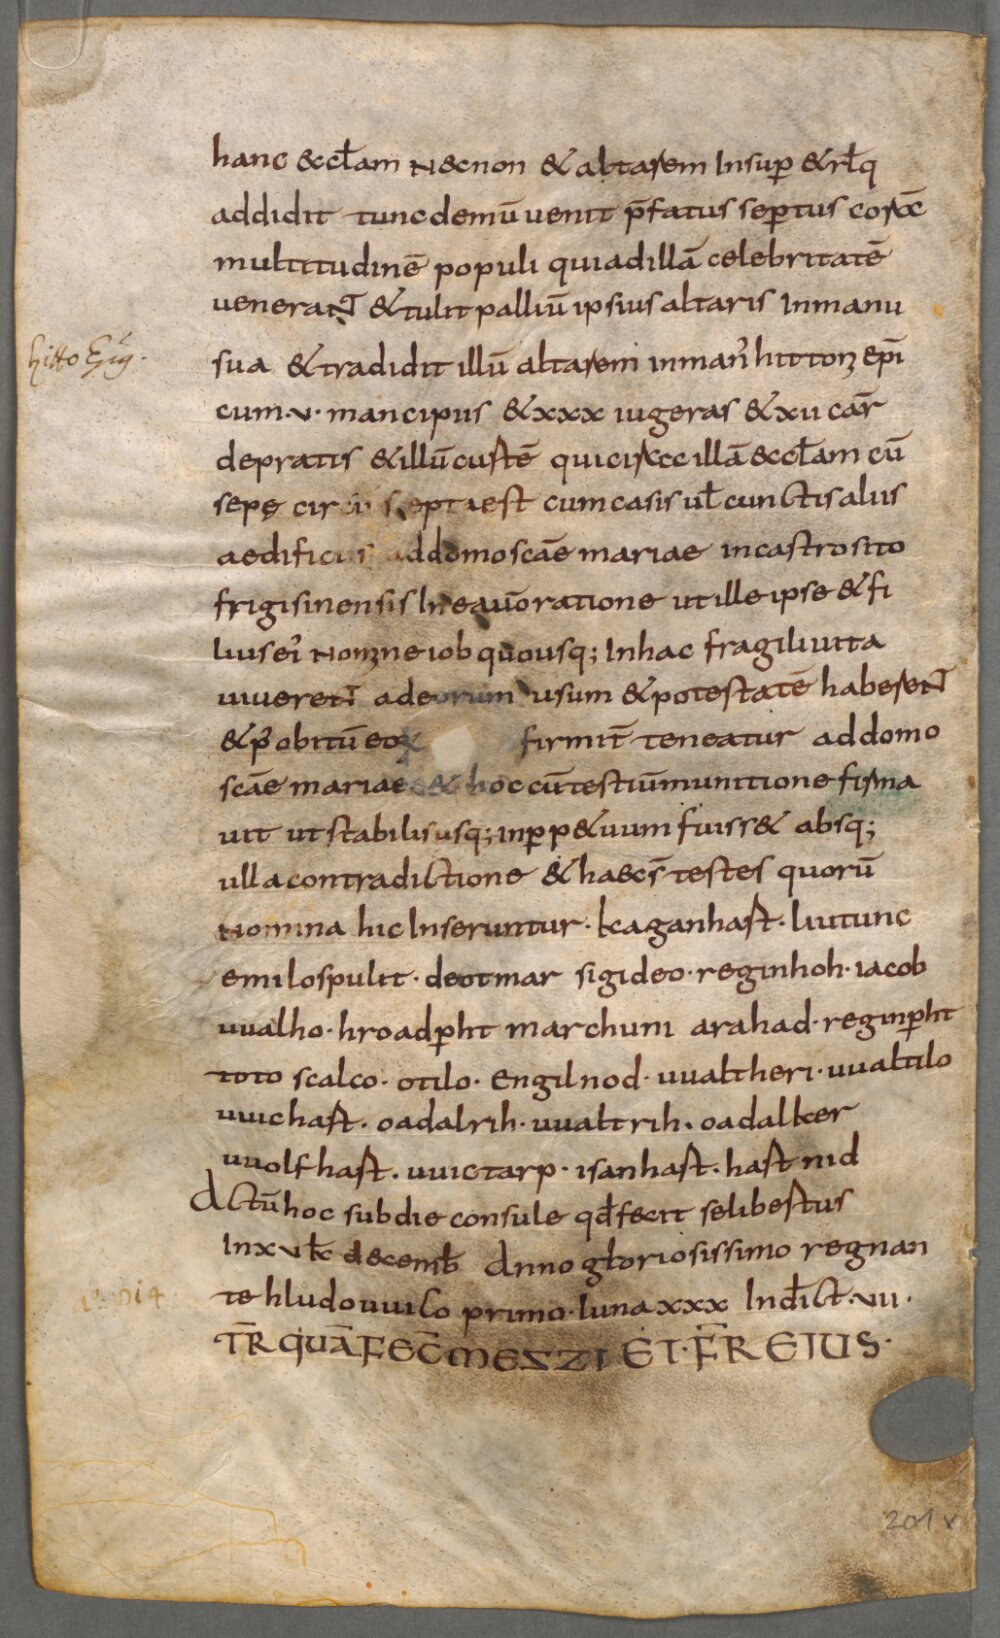 hanc &ccłam N&cnon & altarem Insup̄ & rłq
addidit tunc demū uenit p̄fatus sep̄tus corā
multitudinē populi qui ad illā celebritatē
ueneraNT̄ & tulit palliū ipsius altaris In manu
sua & tradidit illū altarem in man' hittonis ep̄i
hitto Ep̄s.
cum .v. mancipiis & xxx iugeras & xii car̄
de pratis & illū custē qui circa illā &ccłam cū
sepe circū septa est cum casis uł cunctis aliis
aedificiis ad domo sc̄ae mariae in castro sito
frigisinensis In ea uō ratione ut ille ipse & fi
lius ei' Nomine iob quousq; In hac fragili uita
uiuereNT̄ ad eorum usum & potestatē habereNT̄
& p' obitū eoꝝ firmit̄ teneatur ad domo
sc̄ae mariae & hoc cū testiū munitione firma
uit ut stabilis usq; in p̄p&uum fuiss& absq;
ulla contradictione & haec s̄ testes quorū
Nomina hic Inseruntur· kaganhast· liutunc
emilo spulit· deotmar sigideo· reginhoh· iacob
uualho· hroadp̄ht marchuni arahad· reginp̄ht
toto scalco· otilo· engilnod· uualtheri· uualtilo
uuichast· oadalrih· uualtrih· oadalker
uuolfhast· uuictarp· isanhast· hastnid
Actū hoc sub die consule qđ fecit selibestus
In xv kł decemƀ Anno gloriosissimo regnan
te hludouuico primo· luna xxx Indict· vii·
TR̄ QUĀ FEC̄ MEZZI ET· FR̄ EIUS·
201 v